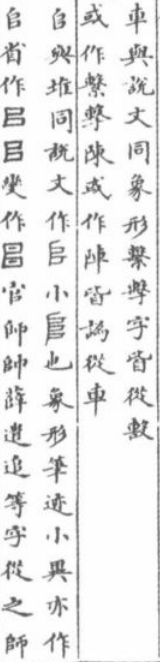 車與說文同象形繫擊字皆從毄
或作繫擊陳或作陣皆譌從車
𠂤與堆同說文作𠂤小𨸏也象形筆迹小異亦作
𠂤省作㠯㠯變作官師帥薛遣追等字從之師